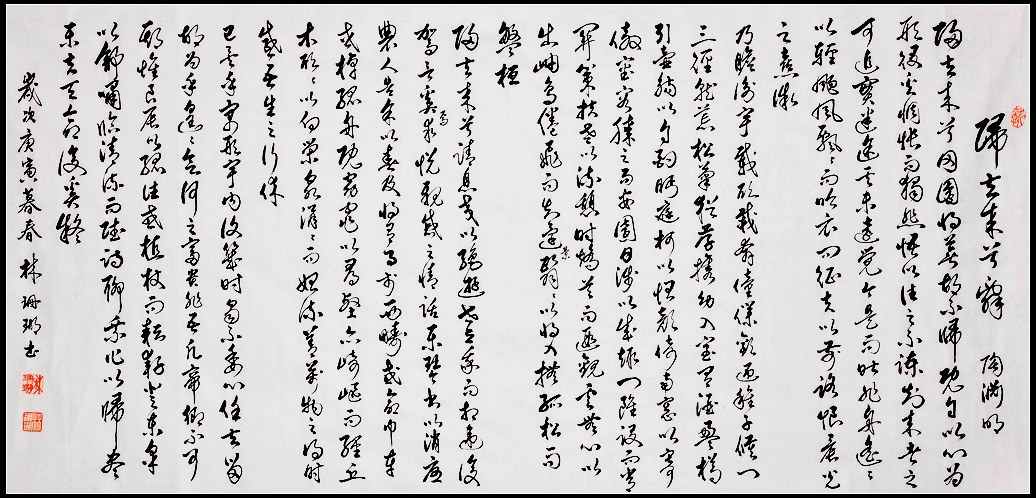 歸去來兮辭 陶淵明
歸去來兮田園將蕪胡不歸既自以心為
形役奚惆悵而獨悲悟以往之不諫知來者之
可追實迷途其未遠覺今是而昨非舟遙遙
以輕颺風飄飄而吹衣問征夫以前路恨晨光
之熹微
乃瞻衡宇載欣載奔僮僕歡迎稚子候門
三徑就荒松菊猶存攜幼入室有酒盈樽
引壺觴以自酌眄庭柯以怡顏倚南窗以寄
傲審容膝之易安園日涉以成趣門雖設而常
關策扶老以流憩時矯首而遐觀雲無心以
出岫鳥倦飛而知還景翳翳以將入撫孤松而
盤桓
歸去來兮請息交以絕遊世與我而相違復
駕言兮焉求悅親戚之情話樂琴書以消憂
農人告余以春及將有事於西疇或命巾車
或棹孤舟既窈窕以尋壑亦崎嶇而經丘
木欣欣以向榮泉涓涓而始流善萬物之得時
感吾生之行休
已矣乎寓形宇內復幾時曷不委心任去留
胡為乎遑遑兮欲何之富貴非吾願帝鄉不可
期懷良辰以孤往或植杖而耘耔登東皋
以舒嘯臨清流而賦詩聊乘化以歸盡
樂夫天命復奚疑
歲次庚寅暮春 林珊瑚書